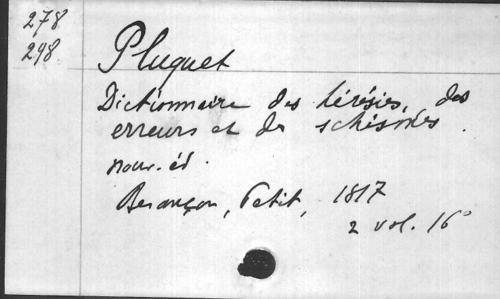 278
298
Pluquet
Dictionnaire des hérésies, des
erreurs et des schismes.
nouv. éd.
Besançon, Petit, 1817
2 vol. 16°